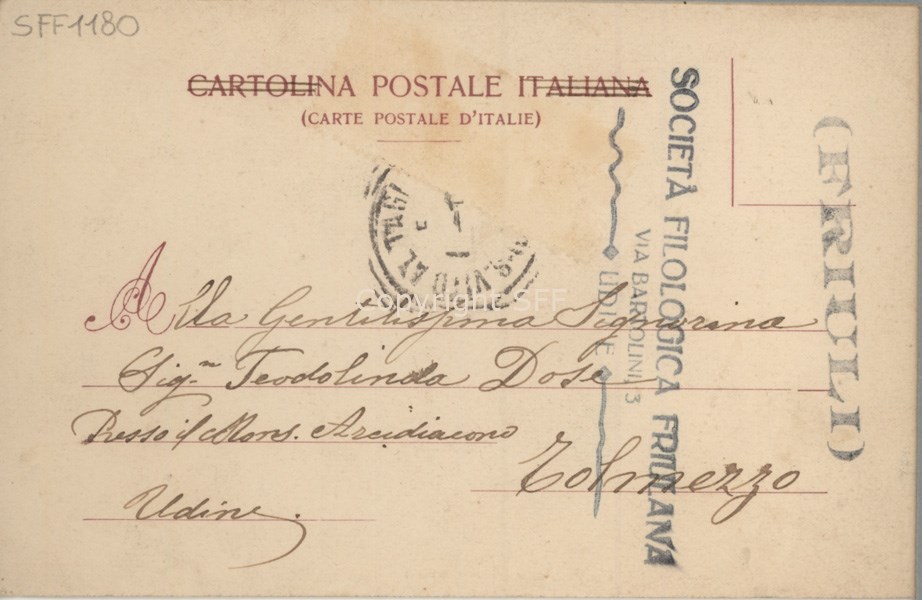 SFF1180
CARTOLINA POSTALE ITALIANA
(CARTE POSTALE D'ITALIE)
S. VITO AL TAGL
Alla Gentilissima Signorina
Sig.na Teodolinda Dose
Presso il Mons. Arcidiacono
Tolmezzo
Udine.
SOCIETÀ FILOLOGICA FRIULANA
VIA BARTOLINI, 3
UDINE
(FRIULI)
Copyright SFF